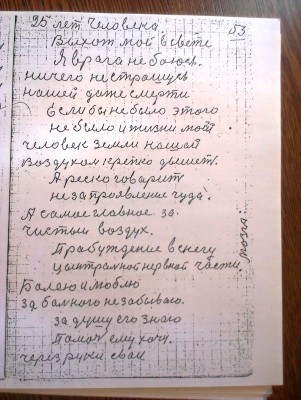 25 лет Человека
53
Выхот мой в свете
Я врага не боюсь.
ничего не страшусь
нашей даже смерти
Если бы не было этого
не было и жизни моей
человек земли нашей
воздухом крепко дышет.
А реско говарит
не за проявление чуда.
А самое главное за
чистый воздух.
Прабуждение в снегу
центральной нервной части
мозга:
Балею и люблю
за балного не забываю.
за душу его знаю
Памоч ему хочу.
через руки сваи